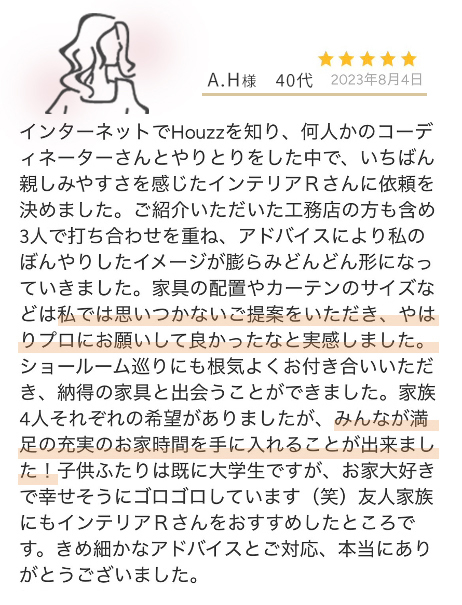 ★★★★★
A.H様　40代　2023年8月4日
インターネットでHouzzを知り、何人かのコーデ
ィネーターさんとやりとりをした中で、いちばん
親しみやすさを感じたインテリアRさんに依頼を
決めました。ご紹介いただいた工務店の方も含め
3人で打ち合わせを重ね、アドバイスにより私の
ぼんやりしたイメージが膨らみどんどん形になっ
ていきました。家具の配置やカーテンのサイズな
どは私では思いつかないご提案をいただき、やは
りプロにお願いして良かったなと実感しました。
ショールーム巡りにも根気よくお付き合いいただ
き、納得の家具と出会うことができました。家族
4人それぞれの希望がありましたが、みんなが満
足の充実のお家時間を手に入れることが出来まし
た！子供ふたりは既に大学生ですが、お家大好き
で幸せそうにゴロゴロしています（笑）友人家族
にもインテリアRさんをおすすめしたところで
す。きめ細かなアドバイスとご対応、本当にあり
がとうございました。